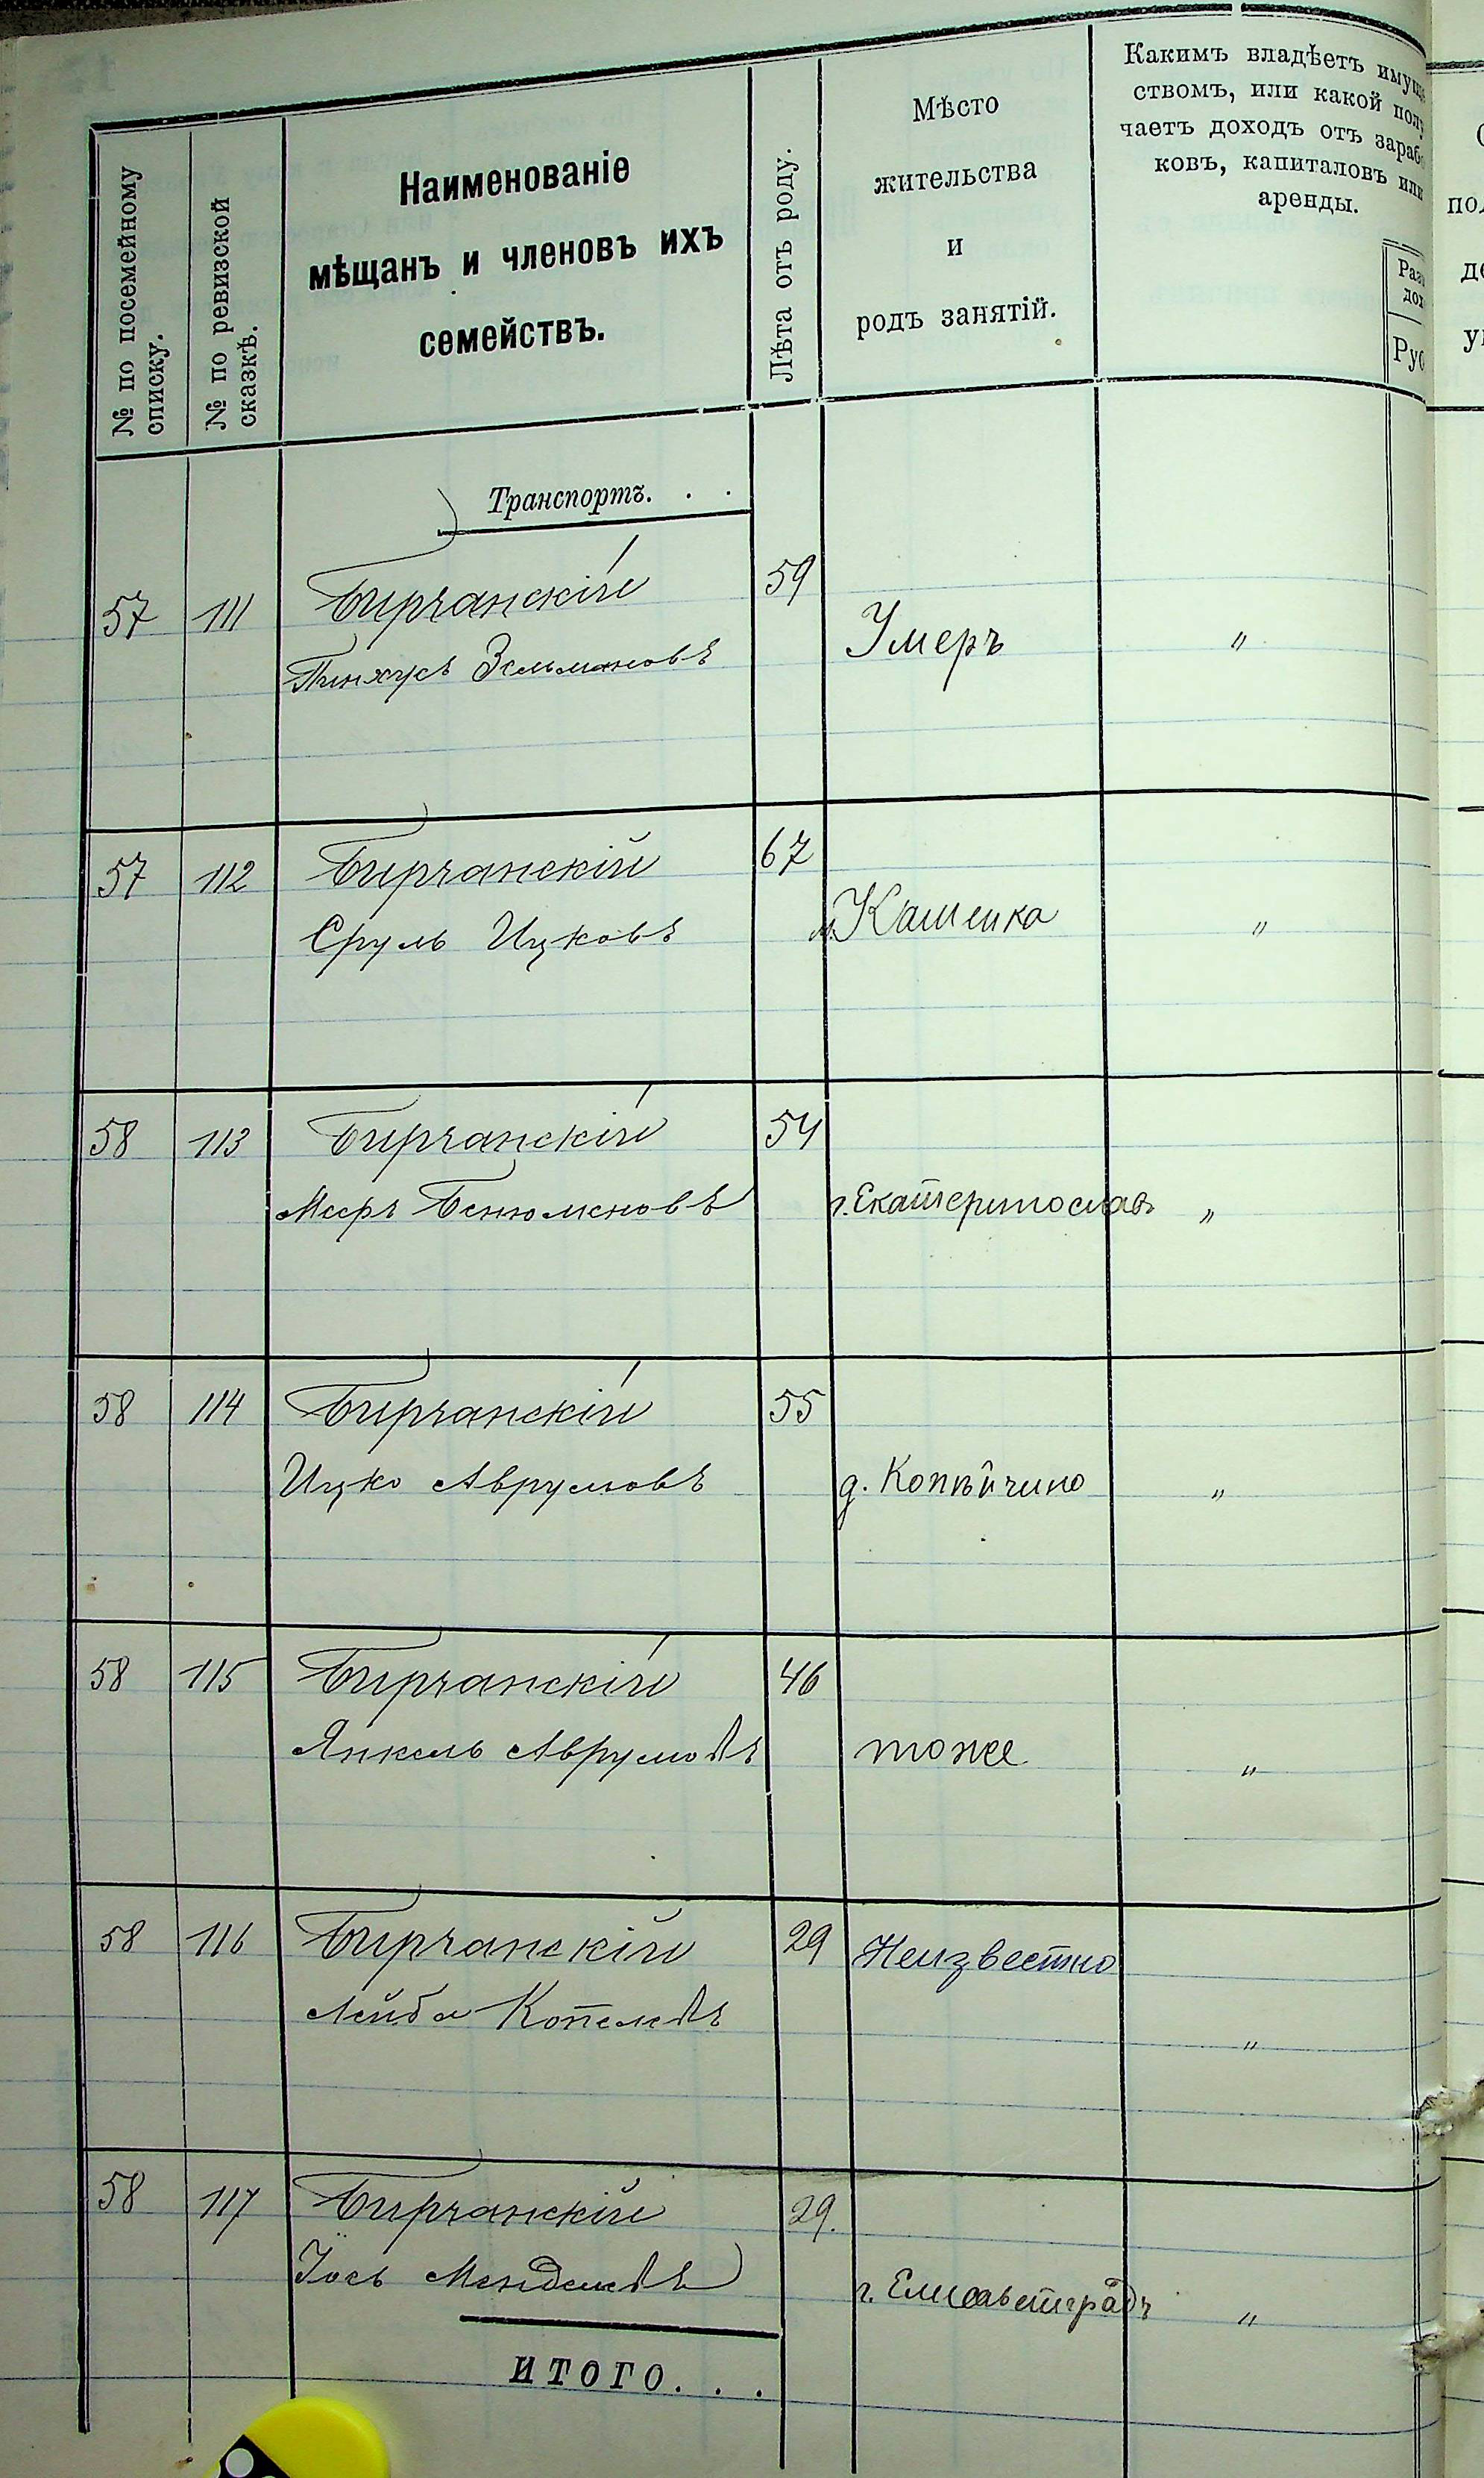 № по посемейному
списку.
№ по ревизской
сказкѣ.
Наименованіе
мѣщанъ и членовъ ихъ
семействъ.
Лѣта отъ роду.
Мѣсто
жительства
и
родъ занятій.
Какимъ владѣетъ имуще
ствомъ, или какой полу
чаетъ доходъ отъ зарабо
ковъ, капиталовъ или
аренды.
Раз
дох
Руб
Транспортъ. . .
57 111 Бирчанскій 59
Пинхусъ Зельмановъ Умеръ "
57 112 Бирчанскій 67
Сруль Ицковъ м. Кашенка "
58 113 Бирчанскій 54
Мееръ Бенюменовъ г. Екатеринославъ "
58 114 Бирчанскій 55
Ицко Аврумовъ д. Копѣйчино "
58 115 Бирчанскій 46
Янкель Аврумовъ тоже "
58 116 Бирчанскій 29 Неизвестно
Лейба Копелевъ "
58 117 Бирчанскій 29.
Іось Менделевъ г. Елисаветградъ "
ИТОГО. . .